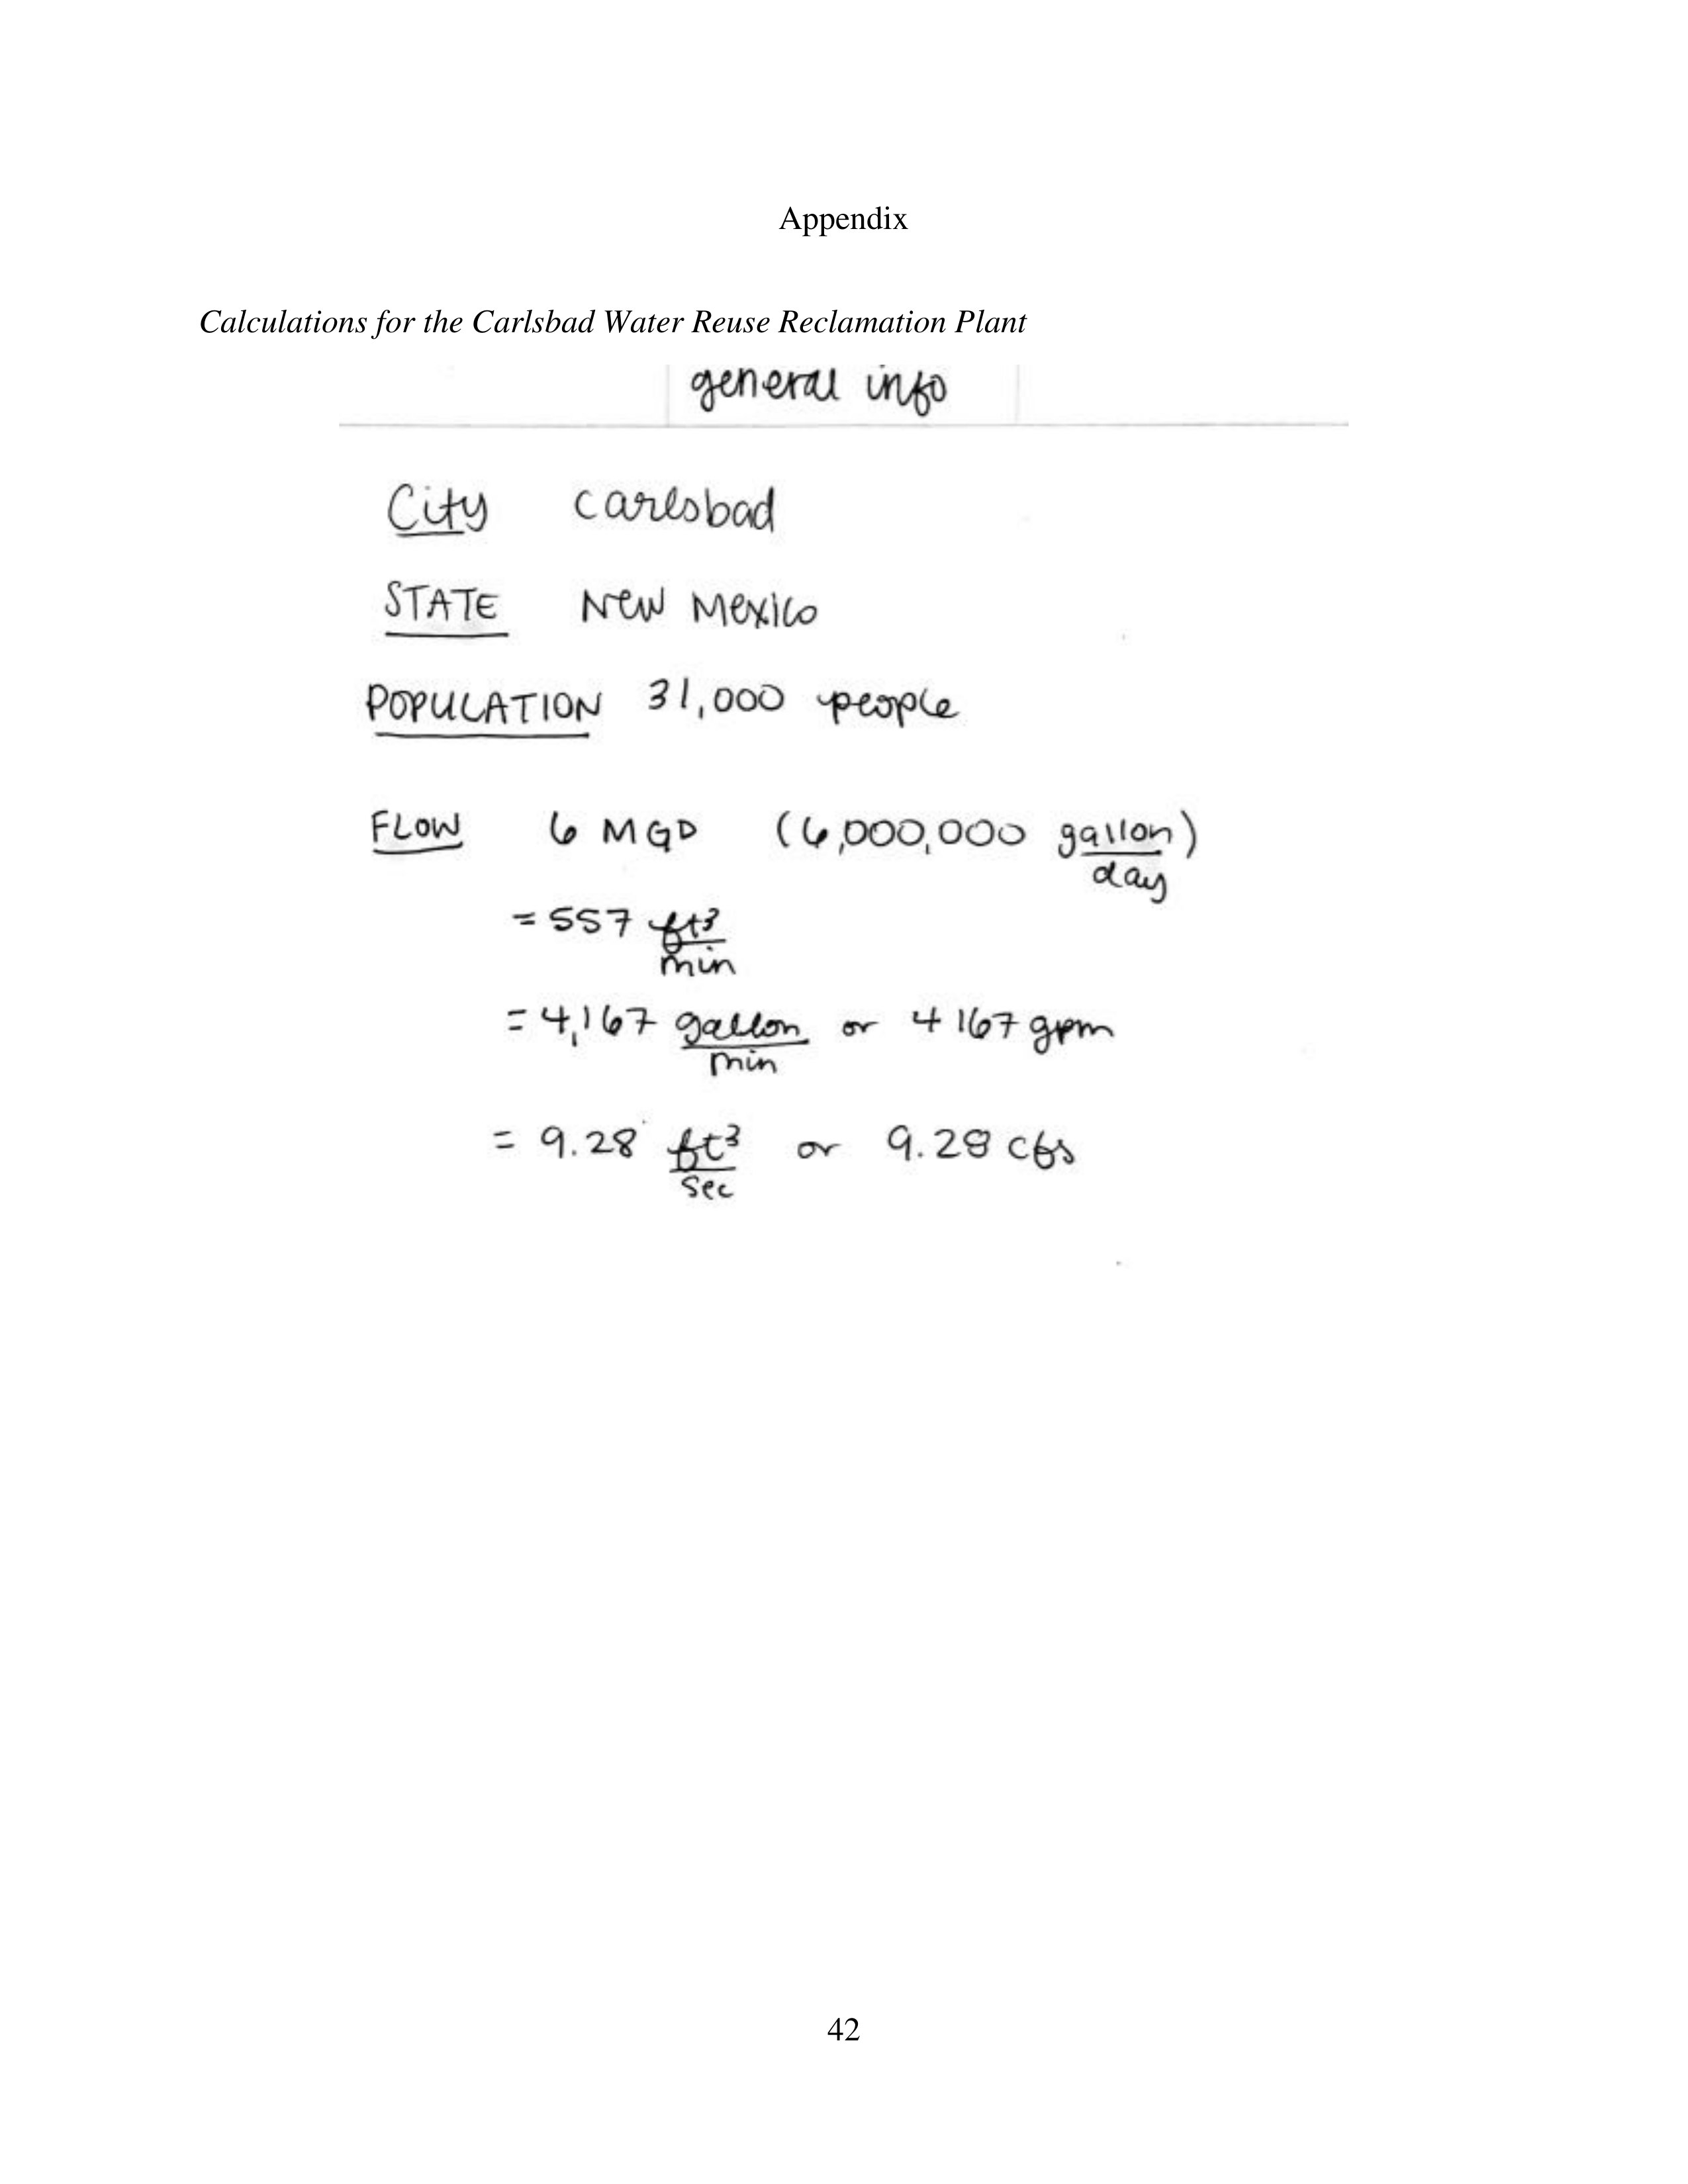 Appendix
Calculations for the Carlsbad Water Reuse Reclamation Plant
general info
City Carlsbad
STATE New Mexico
POPULATION 31,000 people
FLOW 6 MGD (6,000,000 gallon/day)
= 557 ft³/min
= 4,167 gallon/min or 4167 gpm
= 9.28 ft³/sec or 9.28 cfs
42